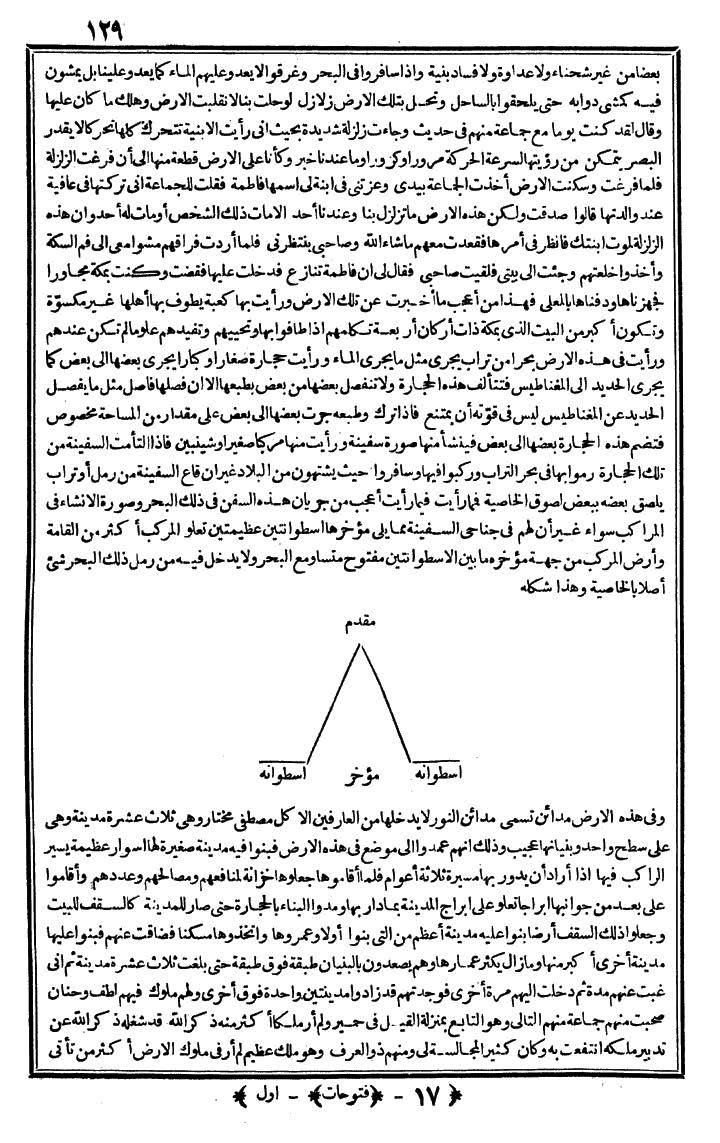 ١٢٩
بعضا من غير شحناء ولا عداوة ولا فساد بنية واذا سافروا فى البحر وغرقوا لا يعدو عليهم الماء كما يعدو علينا بل يمشون
فيه كمشى دوابه حتى يلحقوا بالساحل وتحمل بتلك الارض زلازل لو حلت بنا لانقلبت الارض وهلك ما كان عليها
وقال لقد كنت يوما مع جماعة منهم فى حديث وجاءت زلزلة شديدة بحيث انى رأيت الابنية تتحرك كلها تحركا لا يقدر
البصر يتمكن من رؤيتها لسرعة الحركة مرورا وكرورا وما عندنا خبر وكأنا على الارض قطعة منها الى أن فرغت الزلزلة
فلما فرغت وسكنت الارض أخذت الجماعة بيدى وعزتنى فى ابنة لى اسمها فاطمة فقلت للجماعة انى تركتها فى عافية
عند والدتها قالوا صدقت ولكن هذه الارض ما تزلزل بنا وعندنا أحد الا مات ذلك الشخص أو مات له أحد وان هذه
الزلزلة لموت ابنتك فانظر فى أمرها فقعدت معهم ما شاء الله وصاحبى ينتظرنى فلما أردت فراقهم مشوا معى الى فم السكة
وأخذوا خلعتهم وجئت الى بيتى فلقيت صاحبى فقال لى ان فاطمة تنازع فدخلت عليها فقضت وكنت بمكة مجاورا
فجهزناها ودفناها بالمعلى فهذا من أعجب ما أخبرت عن تلك الارض ورأيت بها كعبة يطوف بها أهلها غير مكسوّة
وتكون أكبر من البيت الذى بمكة ذات أركان أربعة تكلمهم اذا طافوا بها وتحييهم وتفيدهم علوما لم تكن عندهم
ورأيت فى هذه الارض بحرا من تراب يجرى مثل ما يجرى الماء ورأيت حجارة صغارا وكبارا يجرى بعضها الى بعض كما
يجرى الحديد الى المغناطيس فتتألف هذه الحجارة ولا تنفصل بعضها من بعض بطبعها الا ان فصلها فاصل مثل ما يفصل
الحديد عن المغناطيس ليس فى قوّته أن يمتنع فاذا ترك وطبعه جرت بعضها الى بعض على مقدار من المساحة مخصوص
فتضم هذه الحجارة بعضها الى بعض فينشأ منها صورة سفينة ورأيت منها مركبا صغيرا وشينيين فاذا التأمت السفينة من
تلك الحجارة رموا بها فى بحر التراب وركبوا فيها وسافروا حيث يشتهون من البلاد غير ان قاع السفينة من رمل أو تراب
يلصق بعضه ببعض لصوق الخاصية فما رأيت فيما رأيت أعجب من جريان هذه السفن فى ذلك البحر وصورة الانشاء فى
المراكب سواء غير أن لهم فى جناحى السفينة مما يلى مؤخرها اسطوانتين عظيمتين تعلو المركب أكثر من القامة
وأرض المركب من جهة مؤخره ما بين الاسطوانتين مفتوح متساو مع البحر ولا يدخل فيه من رمل ذلك البحر شئ
أصلا بالخاصية وهذا شكله
مقدم
اسطوانه مؤخر اسطوانه
وفى هذه الارض مدائن تسمى مدائن النور لا يدخلها من العارفين الا كل مصطفى مختار وهى ثلاث عشرة مدينة وهى
على سطح واحد وبنيانها عجيب وذلك انهم عمدوا الى موضع فى هذه الارض فبنوا فيه مدينة صغيرة لها اسوار عظيمة يسير
الراكب فيها اذا أراد أن يدور بها مسيرة ثلاثة أعوام فلما أقاموها جعلوها خزانة لمنافعهم ومصالحهم وعددهم وأقاموا
على بعد من جوانبها ابراجا تعلو على ابراج المدينة بما دار بها ومدوا البناء بالحجارة حتى صار للمدينة كالسقف للبيت
وجعلوا ذلك السقف أرضا بنوا عليه مدينة أعظم من التى بنوا أولا وعمروها واتخذوها مسكنا فضاقت عنهم فبنوا عليها
مدينة أخرى أكبر منها وما زال يكثر عمارها وهم يصعدون بالبنيان طبقة فوق طبقة حتى بلغت ثلاث عشرة مدينة ثم انى
غبت عنهم مدة ثم دخلت اليهم مرة أخرى فوجدتهم قد زادوا مدينتين واحدة فوق أخرى ولهم ملوك فيهم لطف وحنان
صحبت منهم جماعة منهم التالى وهو التابع بمنزلة القيل فى حمير ولم أر ملكا أكثر منه ذكر الله قد شغله ذكر الله عن
تدبير ملكه انتفعت به وكان كثير المجالسة لى ومنهم ذو العرف وهو ملك عظيم لم أر فى ملوك الارض أكثر من تأتى
﴿ ١٧ - ﴿فتوحات﴾ - اول ﴾